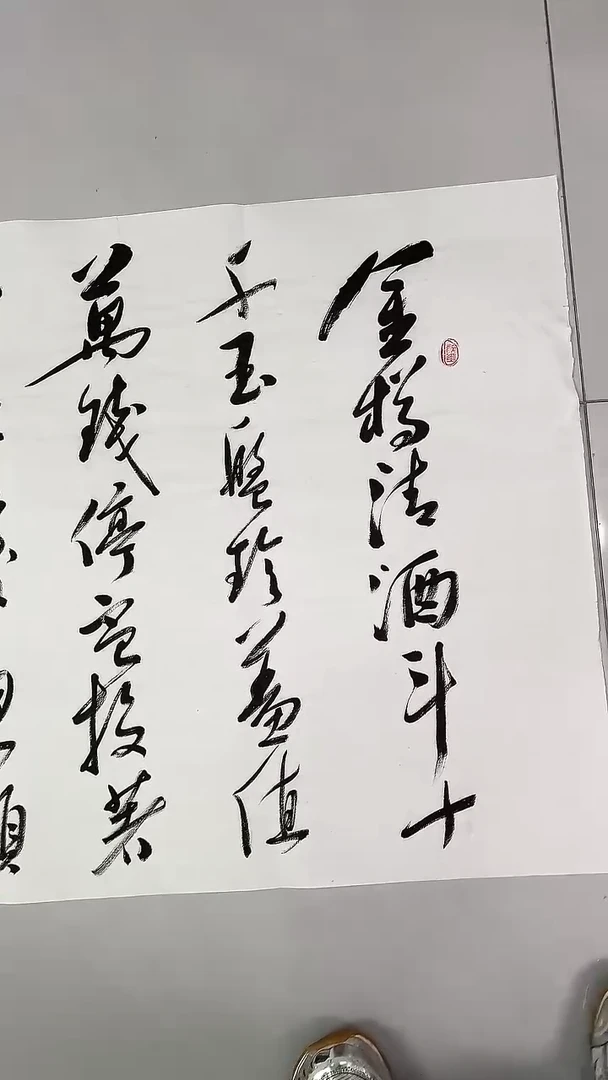 金樽清酒斗十
千玉盤珍羞值
萬錢停盃投著